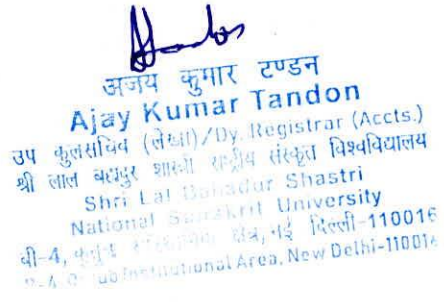 अजय कुमार टण्डन
Ajay Kumar Tandon
उप कुलसचिव (लेखा)/Dy. Registrar (Accts.)
श्री लाल बहादुर शास्त्री राष्ट्रीय संस्कृत विश्वविद्यालय
Shri Lal Bahadur Shastri
National Sanskrit University
बी-4, क्षेत्र, नई दिल्ली-110016
Institutional Area, New Delhi-110016